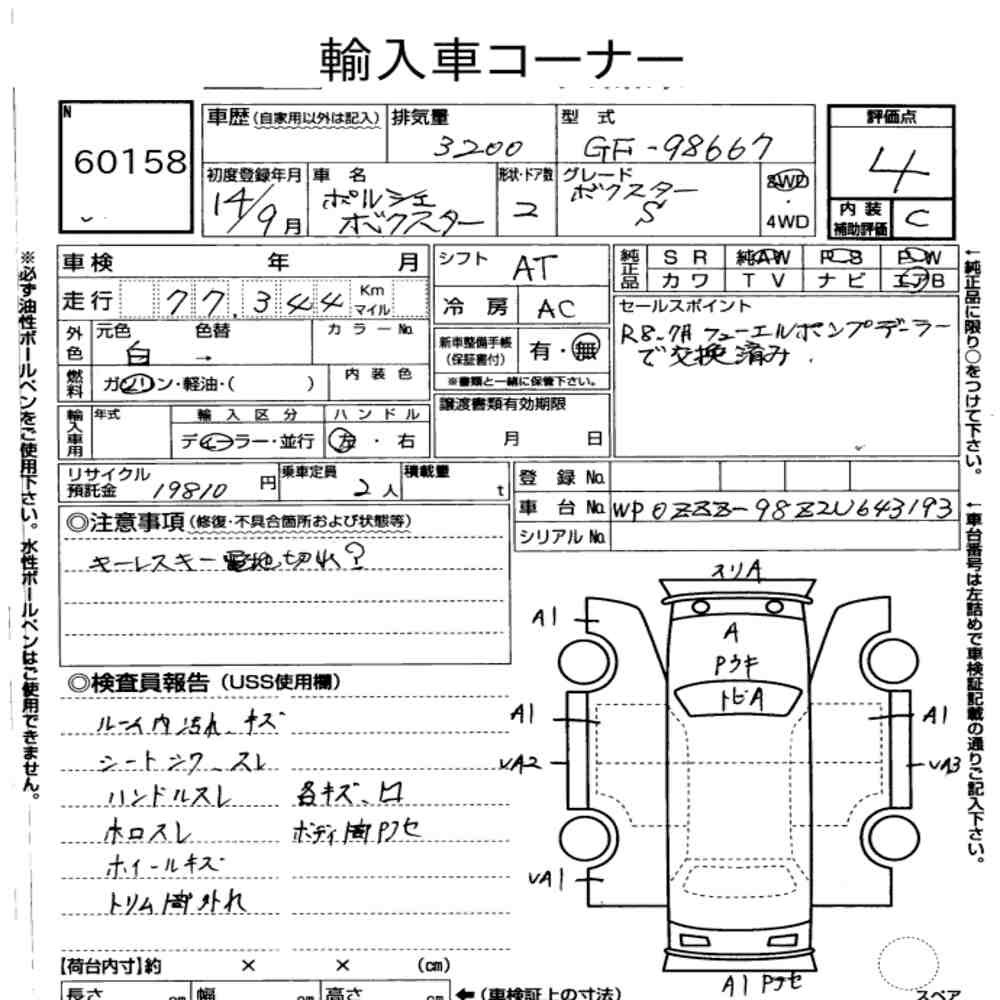 輸入車コーナー
N
60158
車歴 (自家用以外は記入)
排気量
3200
型 式
GF-98667
評価点
4
初度登録年月
14/9月
車 名
ポルシェ
ボクスター
形状・ドア数
2
グレード
ボクスター
S
2WD
・
4WD
内装
補助評価
C
車検 年 月
走行 77,344 Km
マイル
外色
元色 色替
白 →
カラーNo.
燃料
ガソリン・軽油・( )
内装色
輸入車用
年式
輸入区分
ディーラー・並行
ハンドル
左・右
シフト
AT
冷房
AC
新車整備手帳
(保証書付)
有・無
※書類と一緒に保管下さい。
譲渡書類有効期限
月 日
純正品
SR 純AW PS PW
カワ TV ナビ エアB
セールスポイント
R8.7月 フューエルポンプデーラー
で交換済み.
リサイクル
預託金 19810 円
乗車定員
2人
積載量
t
登録 No.
車台 No. WP0ZZZ-98Z2U643193
シリアル No.
◎注意事項 (修復・不具合箇所および状態等)
キーレスキー電池切れ?
◎検査員報告 (USS使用欄)
ルーム内汚れ、キズ
シートシワ、スレ
ハンドルスレ
各キズ、凹
ホロスレ
ボディ 肉Pクセ
ホイールキズ
トリム 肉外れ
スリA
A1
A
Pウキ
トビA
A1
A1
VA2
VA3
VA1
A1 Pクセ
スペア
【荷台内寸】約 × × (cm)
長さ cm 幅 cm 高さ cm
←(車検証上の寸法)
※必ず油性ボールペンをご使用下さい。水性ボールペンはご使用できません。
←純正品に限り○をつけて下さい。
←車台番号は左詰めで車検証記載の通りご記入下さい。